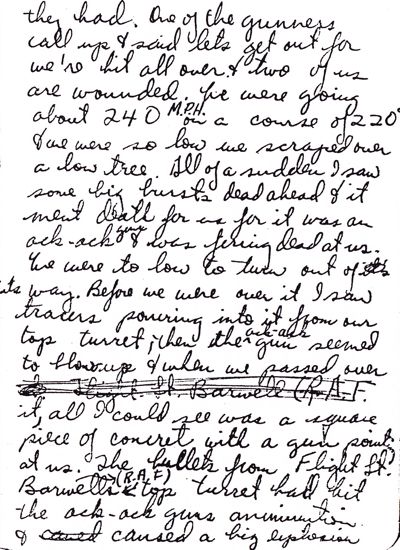 they had. One of the gunners
call up & said lets get out for
we're hit all over & two of us
are wounded. We were going
about 240 M.P.H. on a course of 220°
& we were so low we scraped over
a low tree. All of a sudden I saw
some big bursts dead ahead & it
ment death for us for it was an
ack-ack gun & was firing dead at us.
We were to low to turn out of its
its way. Before we were over it I saw
tracers pouring into it from our
top turret, then the ack-ack gun seemed
to blow up & when we passed over
Flight St. Barwell (R.A.F.
it, all I could see was a square
piece of concret with a gun point
at us. The bullets from Flight St.
Barwell's (R.A.F) top turret had hit
the ack-ack guns ammunition
& caused caused a big explosion